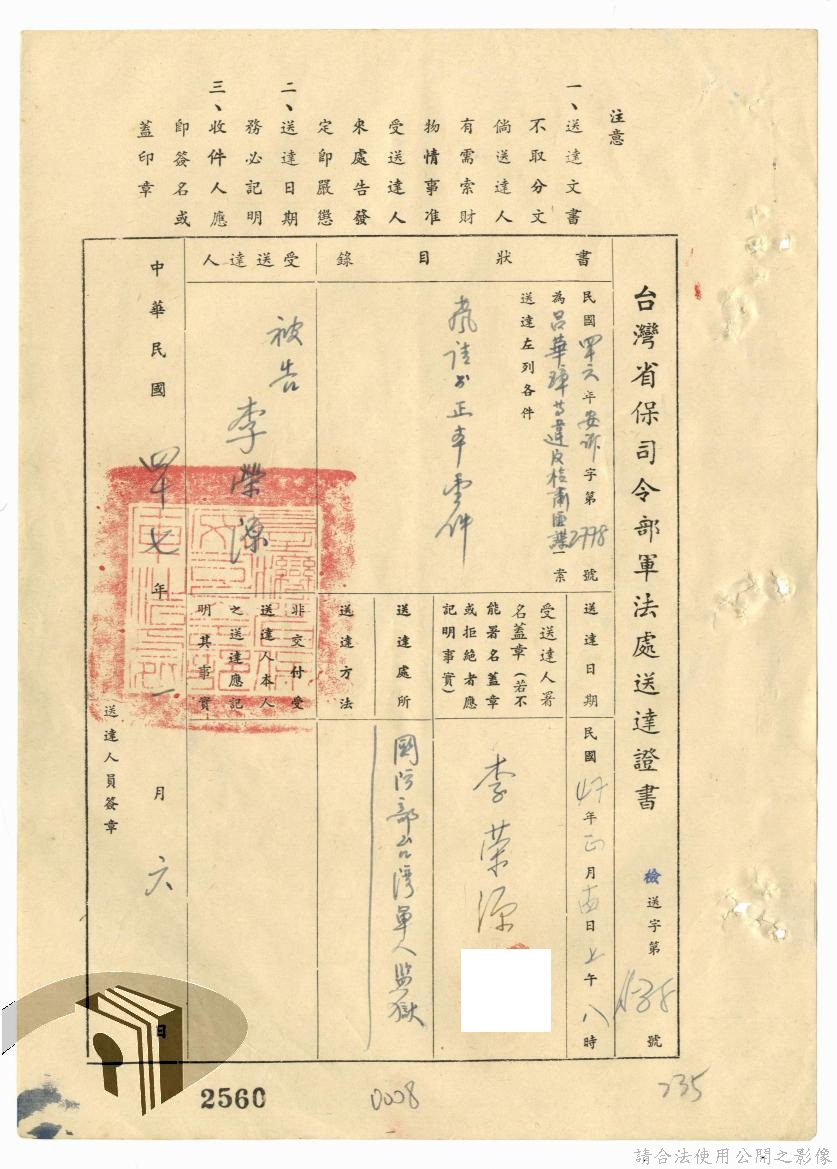 注意
一、送達文書
不取分文
倘送達人
有需索財
物情事准
受送達人
來處告發
定即嚴懲
二、送達日期
務必記明
三、收件人應
即簽名或
蓋印章
台灣省保司令部軍法處送達證書
檢送字第
號
書狀目錄
民國四十六年安訴字第2778號
為呂華璋等違反檢肅匪諜一案
送達左列各件
正本壹件
受送達人
被告 李榮源
送達日期
民國47年正月 日上午八時
受送達人署
名蓋章(若不
能署名蓋章
或拒絕者應
記明事實)
李榮源
送達處所
國防部台灣軍人監獄
送達方法
非交付受
送達人本人
之送達應記
明其事實
中華民國四十七年一月六日
送達人員簽章
2560
0008
235
請合法使用公開之影像